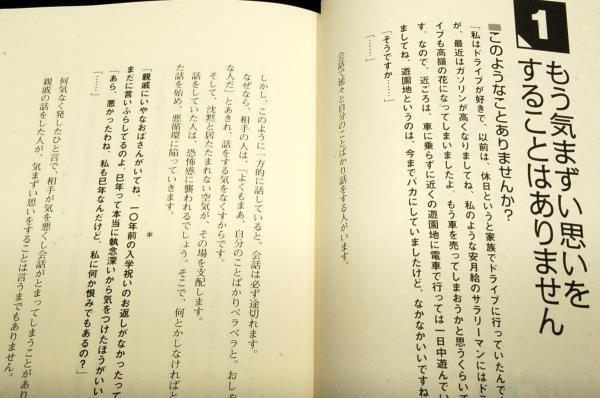 1
もう気まずい思いを
することはありません
■このようなことありませんか?
「私はドライブが好きで、以前は、休日というと家族でドライブに行っていたんで
が、最近はガソリンが高くなりましてね、私のような安月給のサラリーマンにはドラ
イブも高嶺の花になってしまいましたよ。もう車を売ってしまおうかと思うくらいで
す。なので、近ごろは、車に乗らずに近くの遊園地に電車で行っては一日中遊んでい
ましてね、遊園地というのは、今までバカにしていましたけど、なかなかいいですね
「そうですか……」
「……」
会話で延々と自分のことばかり話をする人がいます。
しかし、このように一方的に話していると、会話は必ず途切れます。
なぜなら、相手の人は、「よくもまあ、自分のことばかりペラペラと。おしゃ
な人だ」とあきれ、話をする気をなくすからです。
そして、沈黙と居たたまれない空気が、その場を支配します。
話をしていた人は、恐怖感に襲われるでしょう。そこで、何とかしなければと
た話を始め、悪循環に陥っていきます。
*
「親戚にいやなおばさんがいてね、一〇年前の入学祝いのお返しがなかったって
まだに言いふらしてるのよ。巳年って本当に執念深いから気をつけたほうがいい
「あら、悪かったわね、私も巳年なんだけど。私に何か恨みでもあるの?」
「……」
何気なく発したひと言で、相手が気を悪くし会話がとまってしまうことがあり
親戚の話をした人が、気まずい思いをすることは言うまでもありません。